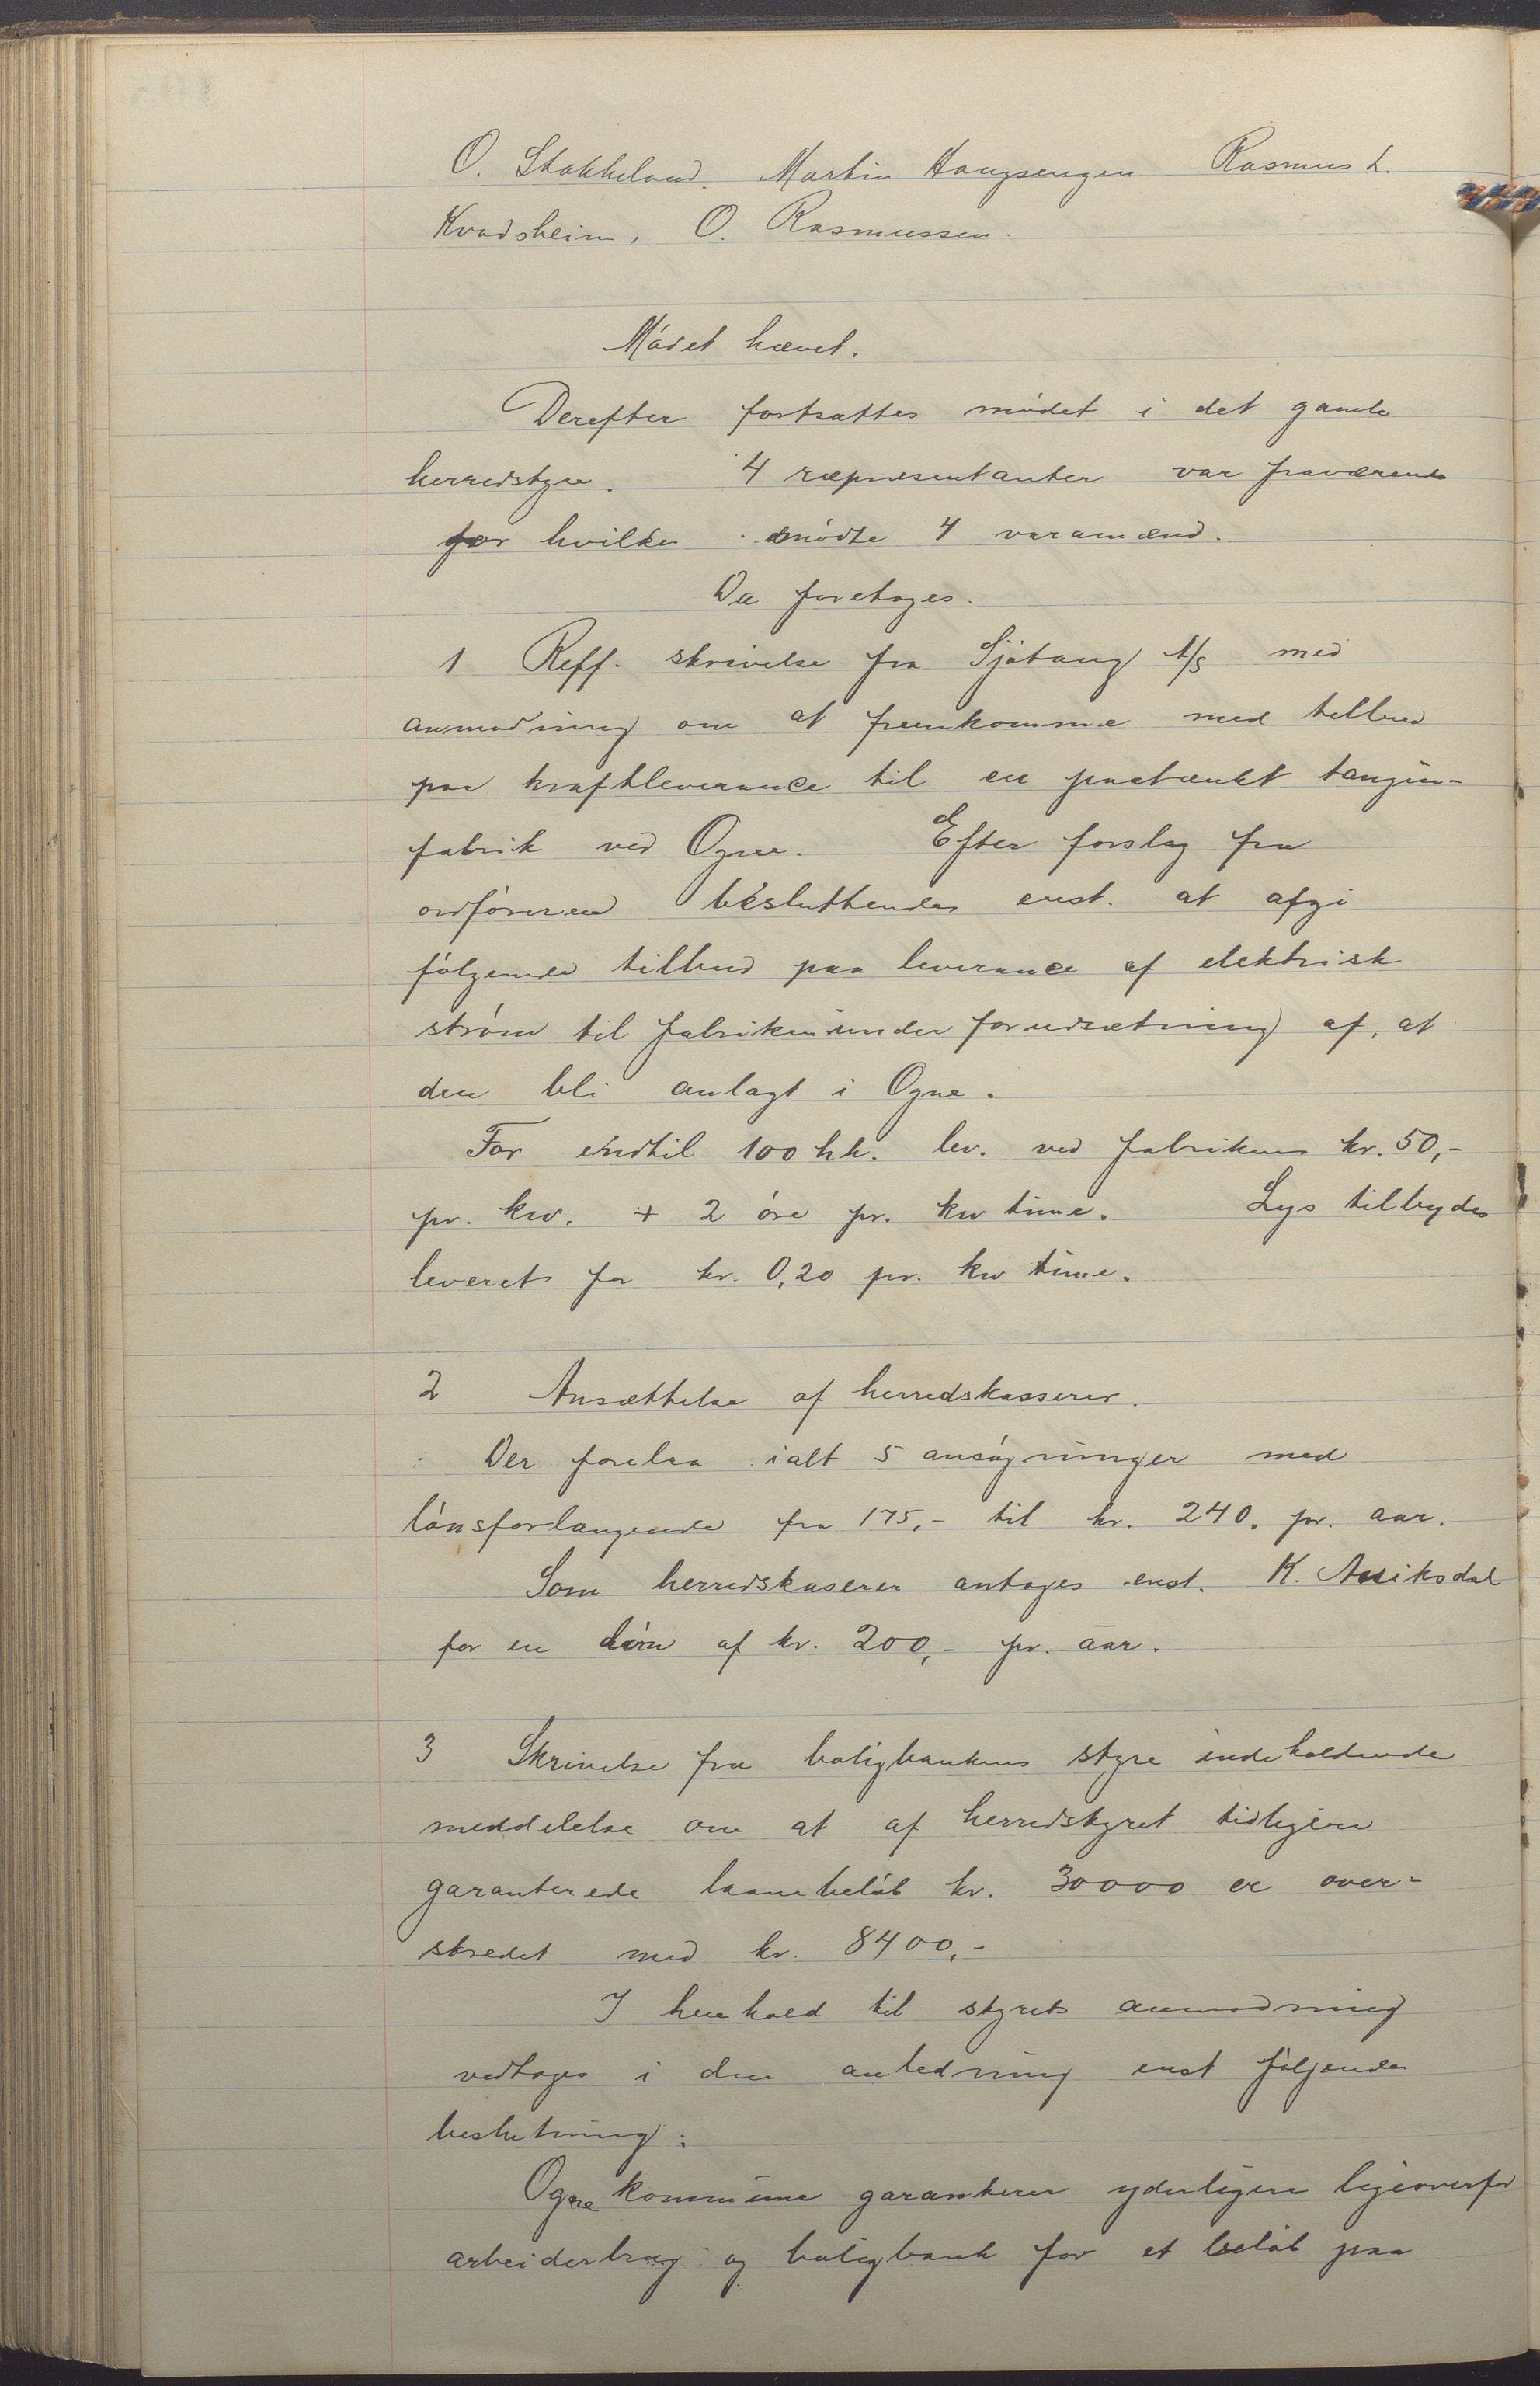 O. Stokkeland. Martin Haugsengen Rasmus L.
Kvadsheim, O. Rasmussen.
Mödet hævet.
Derefter fortsattes mödet i det gamle
herredstyre. 4 repræsentanter var fraværende
for hvilke mödte 4 varamænd.
Da foretoges.
1 Reff. skrivelse fra Sjötang A/S med
anmodning om at fremkomme med tilbud
paa kraftleverance til en paatænkt tangin-
fabrik ved Ogne. Efter forslag fra
ordföreren besluttendes enst. at afgi
fölgende tilbud paa leverance af elektrisk
ström til fabriken under forudsætning af, at
den bli anlagt i Ogne.
For indtil 100 hk. lev. ved fabriken kr. 50,-
pr. kw. + 2 öre pr. kw time. Lys tilbydes
leveret for kr. 0,20 pr. kw time.
2 Ansættelse af herredskasserer.
Der forelaa ialt 5 ansögninger med
lönsforlangende fra 175,- til kr. 240. pr. aar.
Som herredskaserer antoges enst. K. Auiksdal
for en lön af kr. 200,- pr. aar.
3 Skrivelse fra boligbankens styre indeholdende
meddelelse om at af herredstyret tidligere
garanterede laanebelöb kr. 30000 er over-
skredet med kr. 8400,-
I henhold til styrets anmodning
vedtoges i den anledning enst fölgende
beslutning:
Ogne kommune garanterer yderligere ligeoverfor
arbeiderbrug og boligbank for et belöb paa